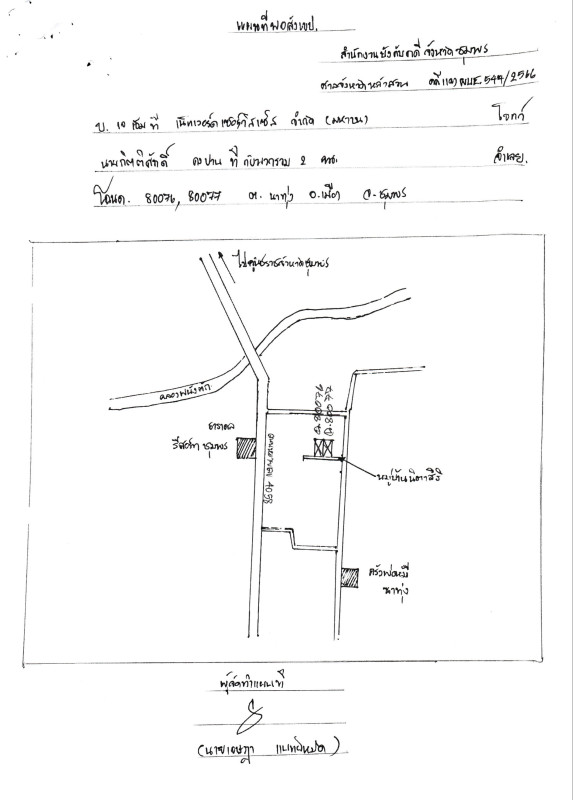 แผนที่พอสังเขป.
สำนักงานบังคับคดี จังหวัดชุมพร
ศาลจังหวัดหลังสวน คดีแดง ผบE 544/2566
บ. เอ เซ็ม ที เน็ทเวอร์ค เซอร์วิสเซ็ส จำกัด (มหาชน) โจทก์
นายกิตติศักดิ์ ที่ กับพวกรวม 2 คน. จำเลย.
โฉนด. 80076, 80077 ต. นาทุ่ง อ.เมือง จ.ชุมพร
ไปศูนย์ราชการจังหวัดชุมพร
คลองพนังตัก
ฉ.80076
ฉ.80077
ธาราดล
รีสอร์ท ชุมพร
ถนนหมายเลข 4098
หมู่บ้านนิตาสิริ
ครัวพ่อหมี
นาทุ่ง
ผู้จัดทำแผนที่
(นายเจษฎา)